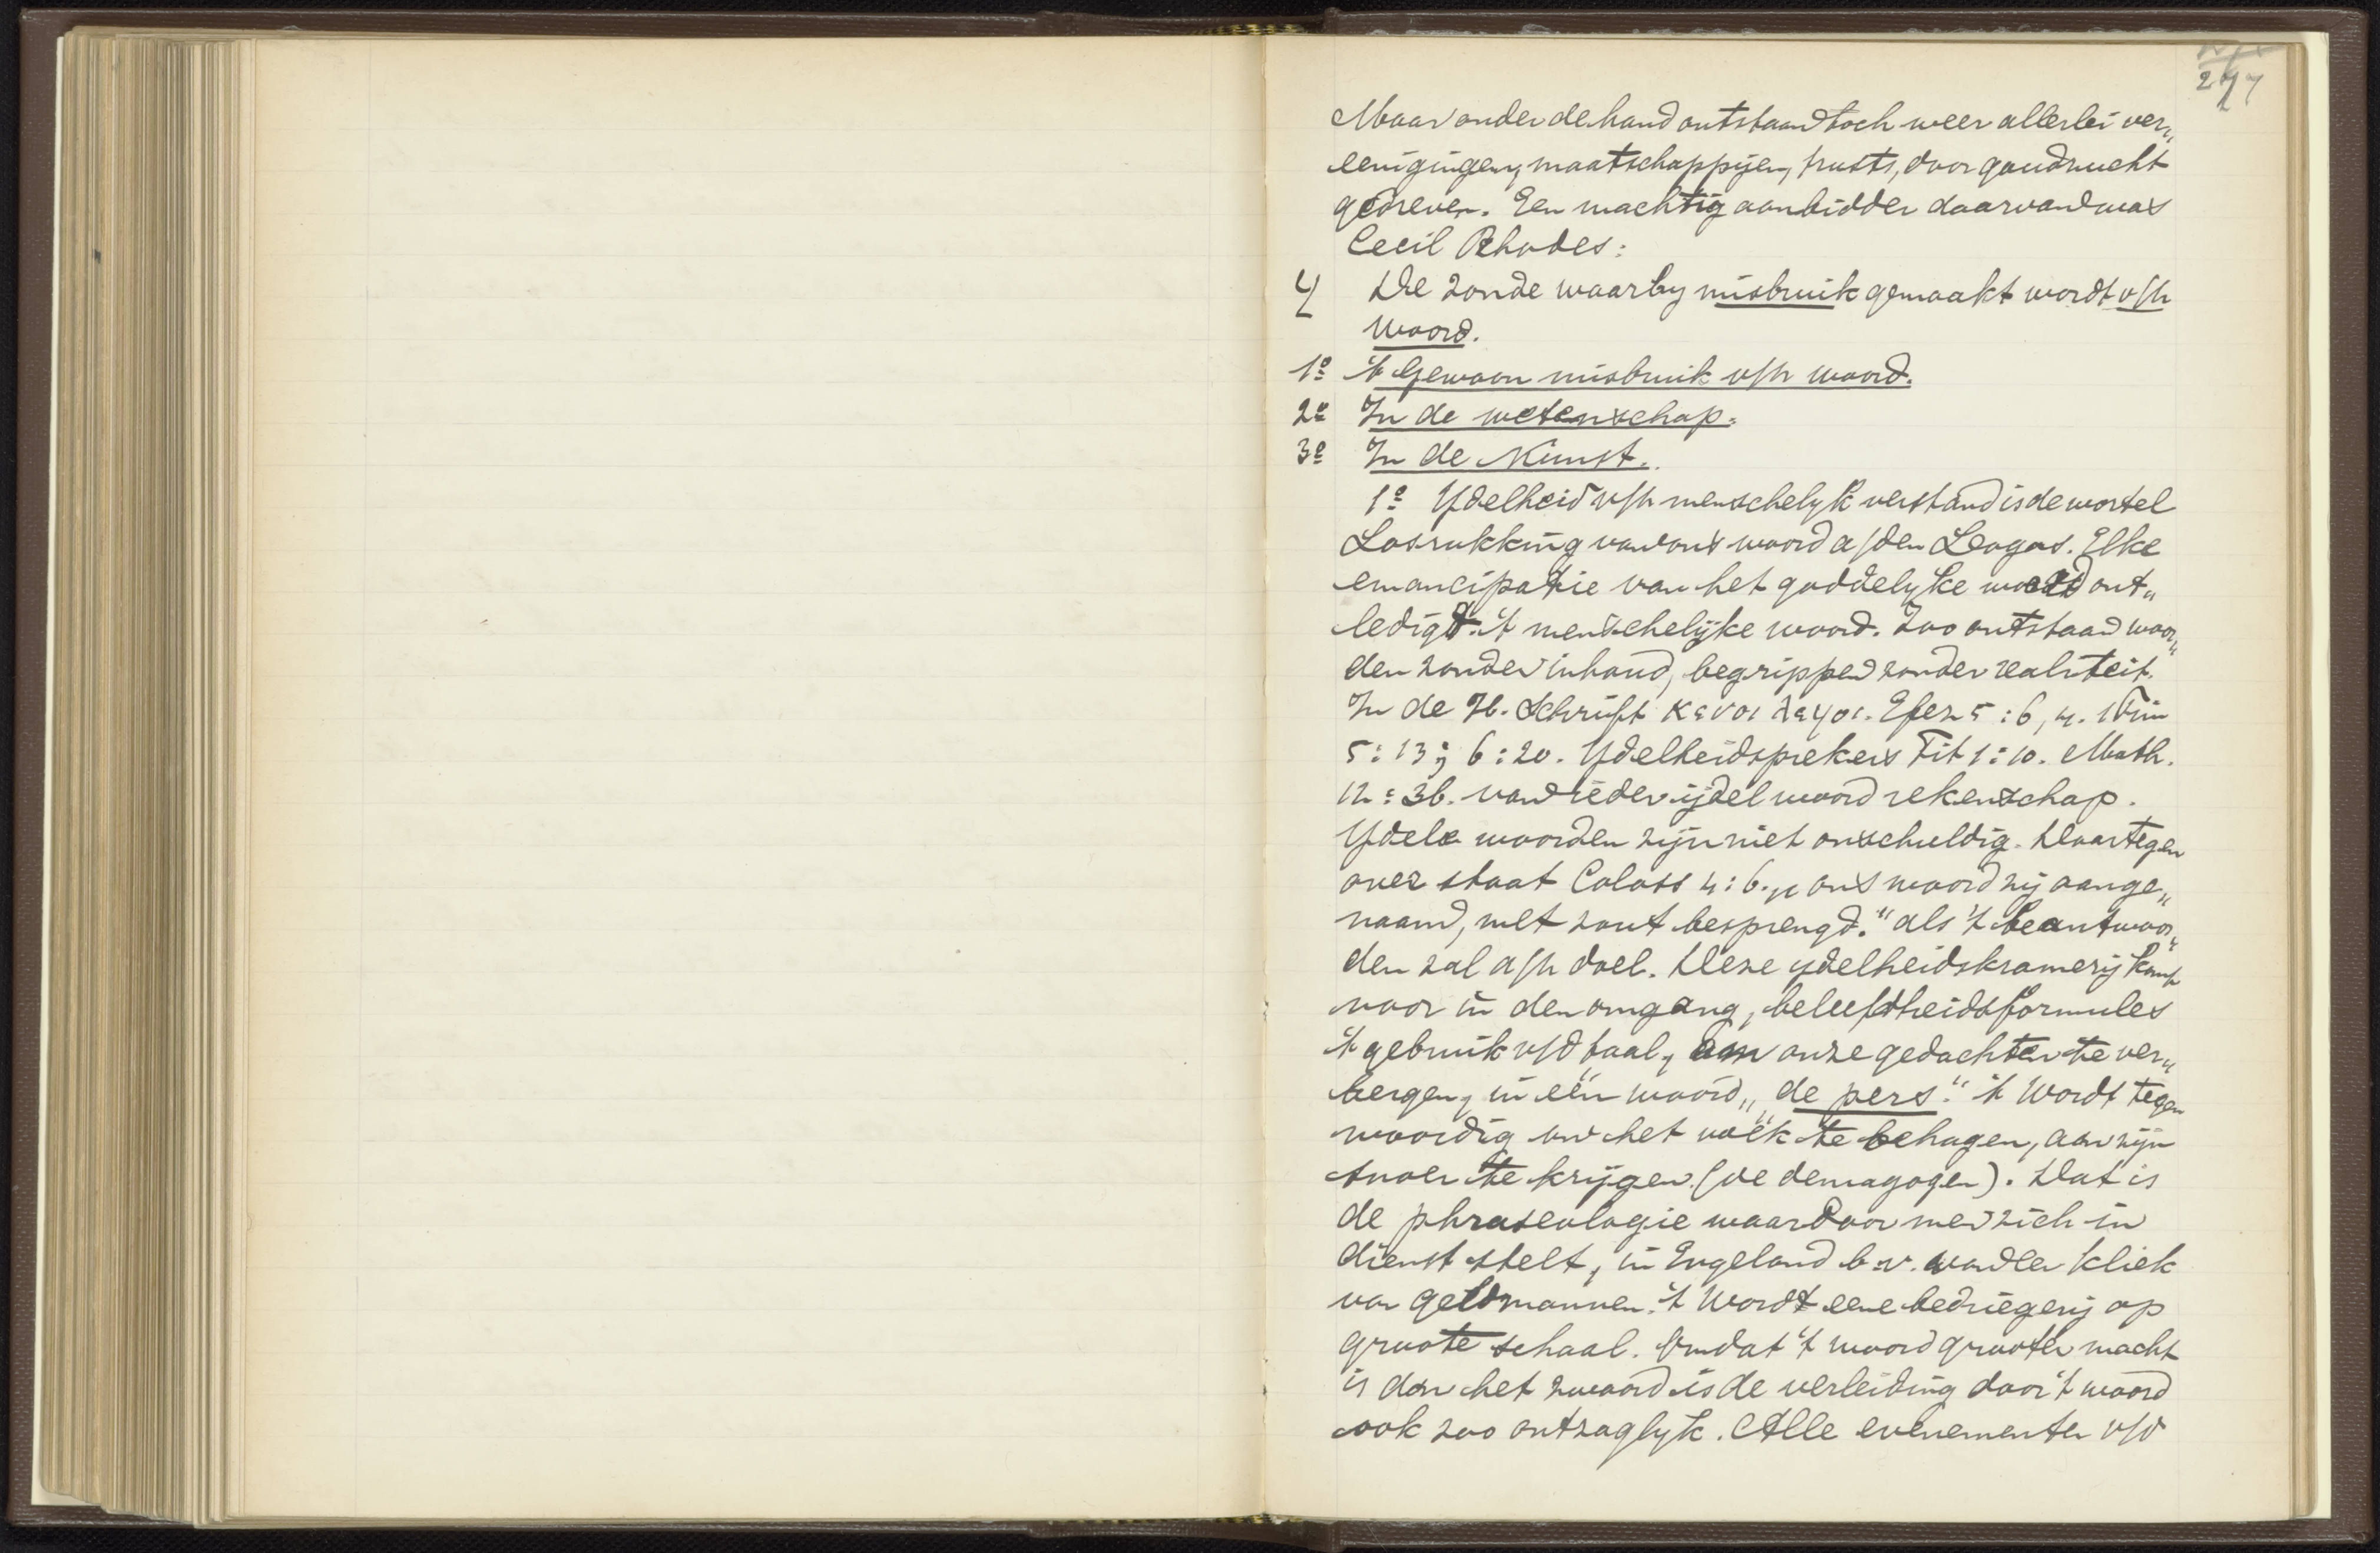 277
Maar onder de hand ontstaan toch weer allerlei ver„
eenigingen, maatschappijen, trusts, door goudzucht
gedreven. Een machtig aanbidder daarvan was
Cecil Rhodes:
4 De zonde waarby misbruik gemaakt wordt v/h
woord.
1º 't Gewoon misbruik v/h woord.
2º In de wetenschap.
3º In de Kunst.
1º Ydelheid v/h menschelyk verstand is de wortel
Losrukking van ons woord a/den Logos. Elke
emancipatie van het goddelyke woord ont„
ledigt 't menschelijke woord. Zoo ontstaan woor„
den zonder inhoud, begrippen zonder realiteit.
In de H. Schrift κενοι λογοι. Efez 5:6, 4. 1 Tim
5:13; 6:20. Ydelheidsprekers Tit 1:10. Math.
12:36. van ieder ijdel woord rekenschap.
Ydele woorden zijn niet onschuldig. Daartegen
over staat Coloss 4:6. „ ons woord zij aange„
naam, met zout besprengd." als 't beantwoor„
den zal a/h doel. Deze ydelheidskramerij komt
voor in den omgang, beleefdheidsformules
't gebruik v/d taal, om onze gedachten te ver„
bergen, in één woord „de pers." 't Wordt tegen
woordig om het volk te behagen, aan zijn
snoer te krijgen (de demagogen). Dat is
de phraseologie waardoor men zich in
dienst stelt, in Engeland b.v. van de kliek
van geldmannen. 't Wordt eene bedriegerij op
groote schaal. Omdat 't woord grooter macht
is dan het zwaard is de verleiding door 't woord
ook zoo ontzaglyk. Alle evenementen v/d